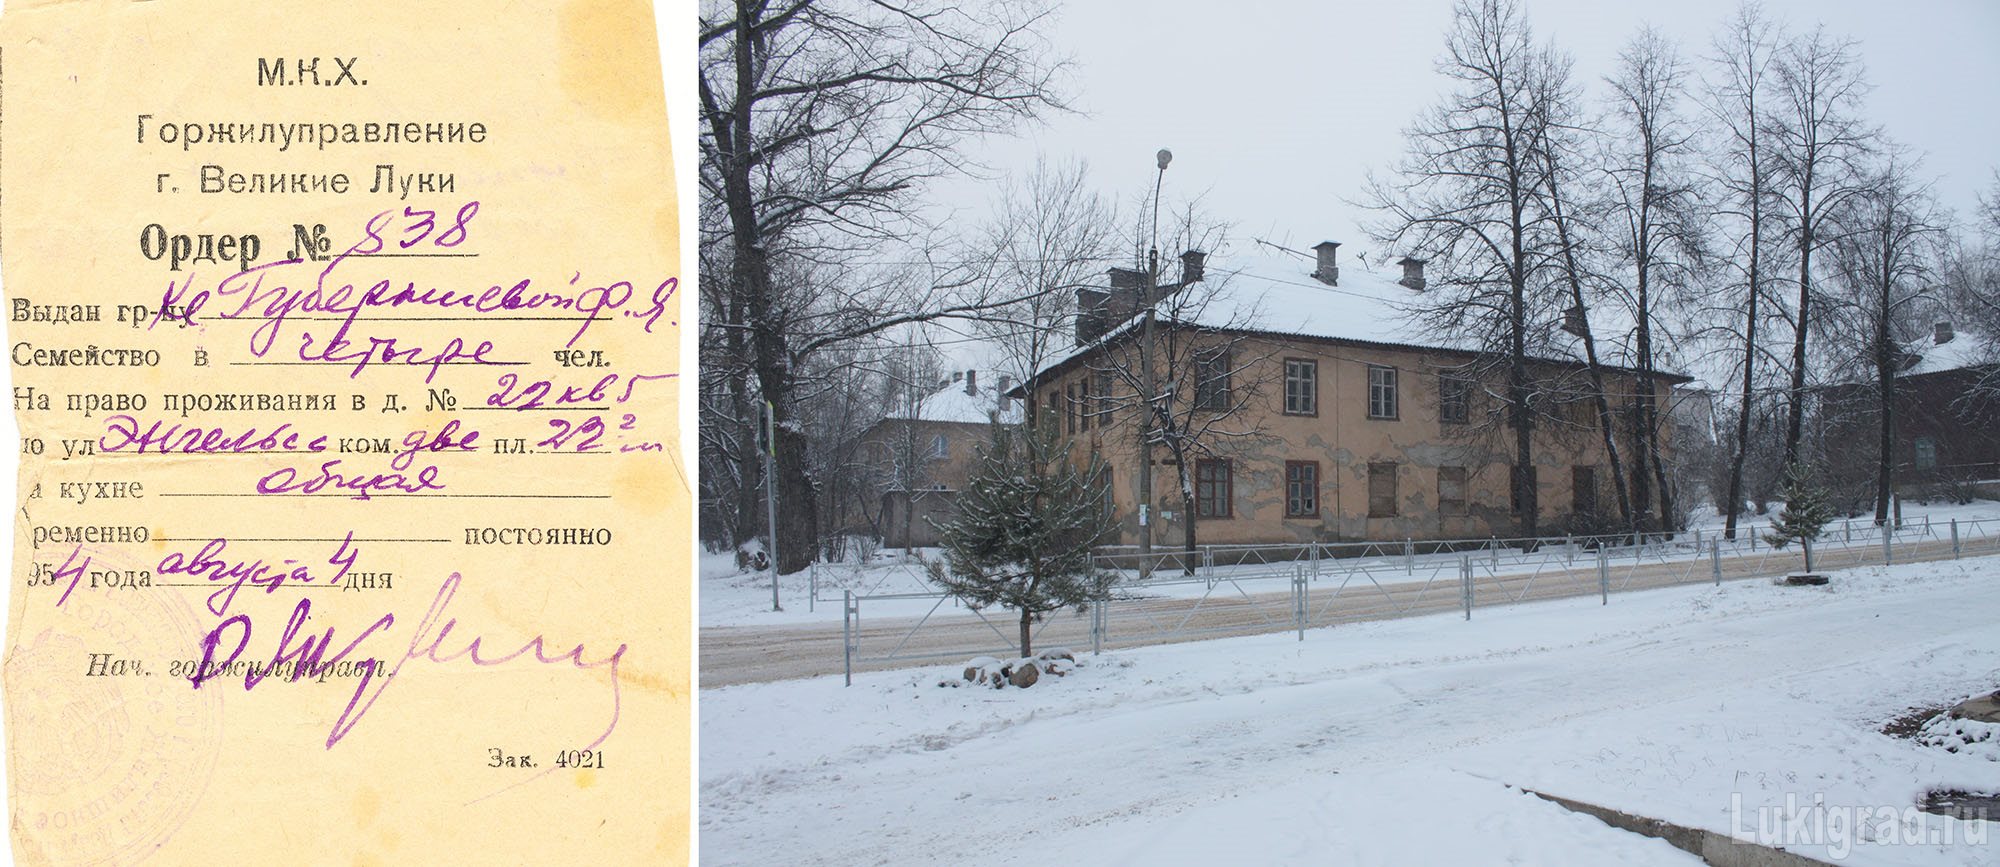 М.К.Х.
Горжилуправление
г. Великие Луки
Ордер № 838
Выдан гр-ну ке Губерниевой Ф. Я.
Семейство в четыре чел.
На право проживания в д. № 22 кв 5
по ул Энгельса ком. две пл. 22 м²
а кухне общая
ременно постоянно
954 года августа 4 дня
Нач. горжилуправл.
Зак. 4021
Lukigrad.ru